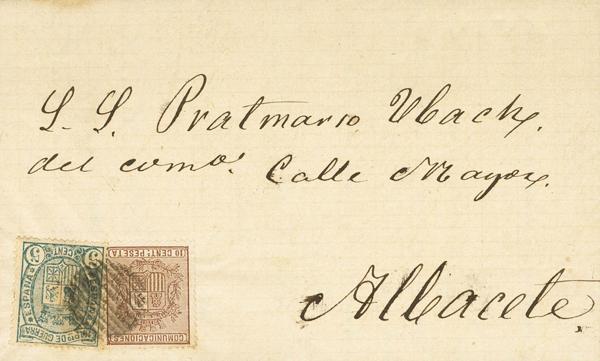 S. S. Pratmarso Ubach,
del comº. Calle Mayor,
Albacete
5 CENT. 5
ESPAÑA
IMPTO DE GUERRA
10 CENTS PESETA
COMUNICACIONES